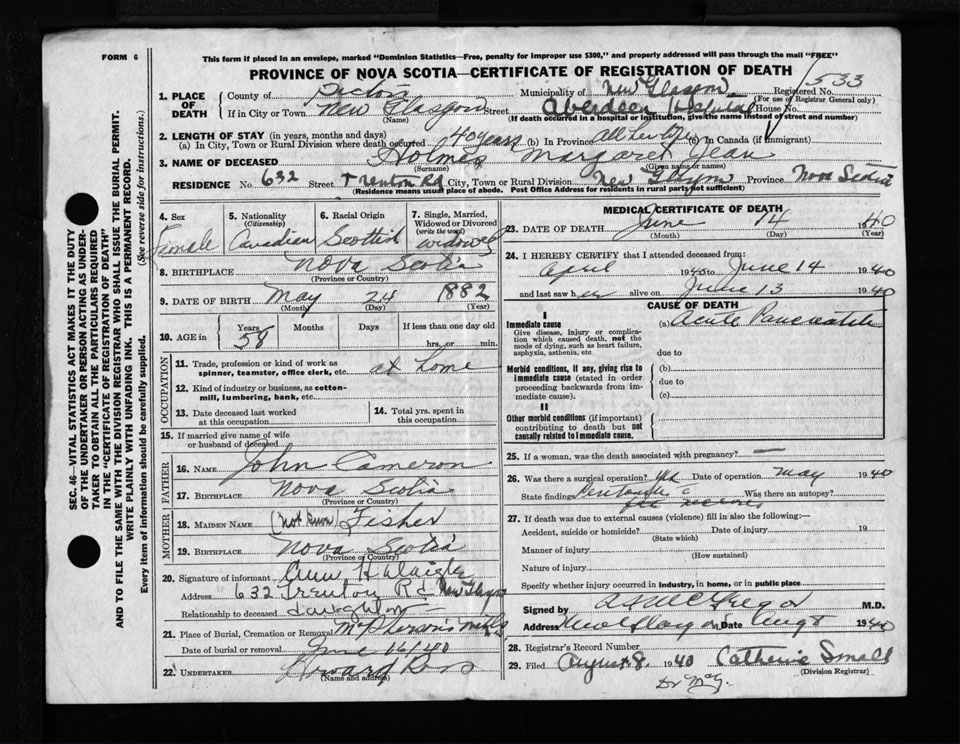 FORM 6
This form if placed in an envelope, marked "Dominion Statistics—Free, penalty for improper use $300," and properly addressed will pass through the mail "FREE"
PROVINCE OF NOVA SCOTIA—CERTIFICATE OF REGISTRATION OF DEATH
1. PLACE OF DEATH County of Pictou Municipality of New Glasgow Registered No. 533
(For use of Registrar General only)
If in City or Town New Glasgow Street Aberdeen Hospital House
(Name) (If death occurred in a hospital or institution, give the name instead of street and number)
2. LENGTH OF STAY (in years, months and days)
(a) In City, Town or Rural Division where death occurred 40 years (b) In Province all her life (c) In Canada (if immigrant)
3. NAME OF DECEASED Holmes Margaret Jean
(Surname) (Given name or names)
RESIDENCE No. 632 Street Trenton Rd City, Town or Rural Division New Glasgow Province Nova Scotia
(Residence means usual place of abode. Post Office Address for residents in rural parts not sufficient)
4. Sex Female
5. Nationality (Citizenship) Canadian
6. Racial Origin Scottish
7. Single, Married, Widowed or Divorced (write the word) widowed
8. BIRTHPLACE Nova Scotia
(Province or Country)
9. DATE OF BIRTH May 24 1882
(Month) (Day) (Year)
10. AGE in Years 58 Months Days If less than one day
hrs. or min.
OCCUPATION
11. Trade, profession or kind of work as spinner, teamster, office clerk, etc. at home
12. Kind of industry or business, as cotton-mill, lumbering, bank, etc.
13. Date deceased last worked at this occupation
14. Total yrs. spent in this occupation
15. If married give name of wife or husband of deceased
FATHER
16. NAME John Cameron
17. BIRTHPLACE Nova Scotia
(Province or Country)
MOTHER
18. MAIDEN NAME (Not Known) Fisher
19. BIRTHPLACE Nova Scotia
(Province or Country)
20. Signature of informant
Address 632 Trenton Rd New Glasgow
Relationship to deceased daughter
21. Place of Burial, Cremation or Removal McPherson's Mills
Date of burial or removal June 16/40
22. UNDERTAKER Howard Ross
(Name and address)
MEDICAL CERTIFICATE OF DEATH
23. DATE OF DEATH June 14 1940
(Month) (Day) (Year)
24. I HEREBY CERTIFY that I attended deceased from:
April 1940 to June 14 1940
and last saw her alive on June 13 1940
CAUSE OF DEATH
I
Immediate cause (a) Acute Pancreatitis
Give disease, injury or complication which caused death, not the mode of dying, such as heart failure, asphyxia, asthenia, etc
due to
Morbid conditions, if any, giving rise to immediate cause (stated in order proceeding backwards from immediate cause). (b)
due to
(c)
II
Other morbid conditions (if important) contributing to death but not causally related to immediate cause.
25. If a woman, was the death associated with pregnancy? —
26. Was there a surgical operation? Date of operation May 1940
State findings Was there an autopsy?
27. If death was due to external causes (violence) fill in also the following:
Accident, suicide or homicide? Date of injury 19
(State which)
Manner of injury
(How sustained)
Nature of injury
Specify whether injury occurred in industry, in home, or in public place
Signed by McGregor M.D.
Address New Glasgow Date Aug 1940
28. Registrar's Record Number
29. Filed August 8. 1940 Catherine Small
(Division Registrar)
Dr McG.
SEC. 46—VITAL STATISTICS ACT MAKES IT THE DUTY OF THE UNDERTAKER OR PERSON ACTING AS UNDERTAKER TO OBTAIN ALL THE PARTICULARS REQUIRED IN THE "CERTIFICATE OF REGISTRATION OF DEATH" AND TO FILE THE SAME WITH THE DIVISION REGISTRAR WHO SHALL ISSUE THE BURIAL PERMIT.
WRITE PLAINLY WITH UNFADING INK. THIS IS A PERMANENT RECORD.
Every item of information should be carefully supplied. (See reverse side for instructions.)